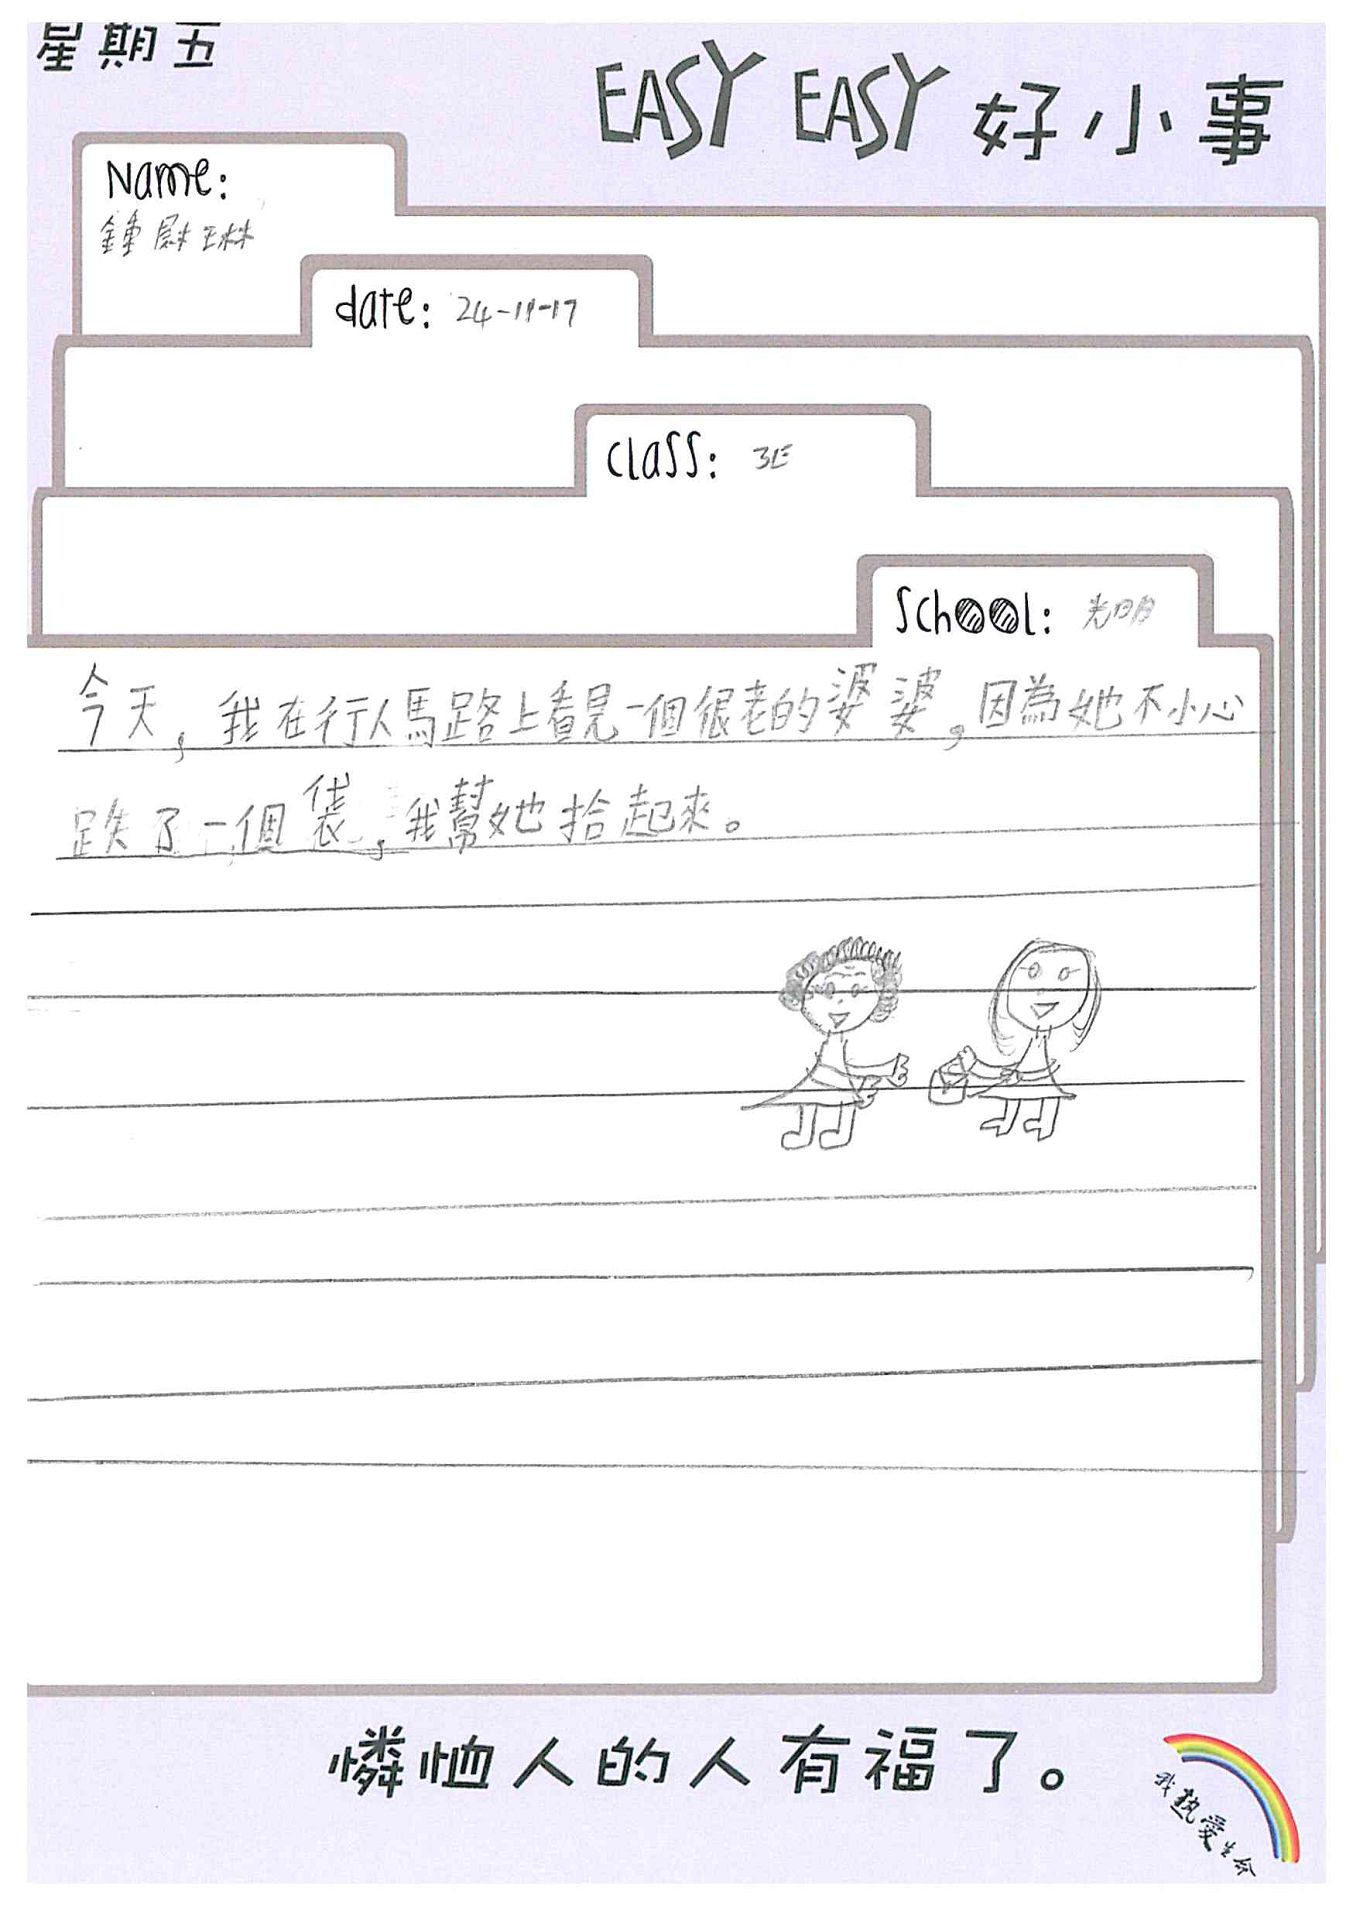 星期五
EASY EASY 好小事
Name:
鍾尉琳
date: 24-11-17
Class: 3E
School: 光明
今天，我在行人馬路上看見一個很老的婆婆，因為她不小心
跌了一個袋，我幫她拾起來。
憐恤人的人有福了。
我熱愛生命